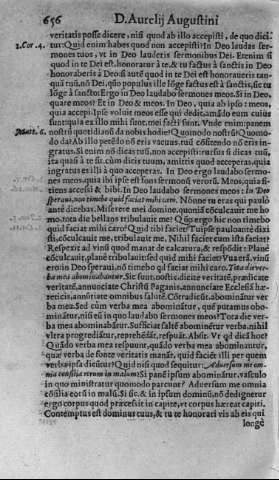 656 D. Aurelij Augustini
veritatis posse dicere, nisi quod ab illo accepisti, de quo dici
2. Cor. 4. tur: Quid enim habes quod non accepisti? In Deo laudas ser
mones tuos, vt in Deo lauderis sermonibus Dei. Etenim si
quod in te Dei est, honoratur à te, & tu factus à sanctis in Deo
honoraberis à Deo: si autē quod in te Dei est honoraueris tan
quā tuū, nō Dei, quo populus ille lōge factus est à sanctis, sic tu
lōge fis à sancto. Ergo in Deo laudabo sermones meos. Si in Deo,
quare meos? Et in Deo & meos. In Deo, quia ab ipso: meos,
quia accepi. Ipse voluit meos esse qui dedit, amādo eum cuius
sunt: quia ex illo mihi sunt, mei facti sunt. Vnde enim panem
Matt. 6. nostrū quotidianū da nobis hodie? Quomodo nostrū? Quomo
do da? Ab illo petēdo nō eris vacuus, tuū cōfitendo nō eris in-
gratus. Si enim nō dicas tuū, non accepisti: rursus si dicas tuū,
ita quasi à te sit, cùm dicis tuum, amittis quod acceperas, quia
ingratus es illi à quo acceperas. In Deo ergo laudabo sermo-
nes meos, quia ibi ipse est fons sermonū verorū. Meos, quia si-
tiens accessi & bibi. In Deo laudabo sermones meos: in Deo
speraui, non timebo quid faciat mihi caro. Nōnne tu eras qui paulò
antè dicebas, Miserere mei domine, quoniā cōculcauit me ho
mo, tota die bellans tribulauit me? Quō ergo hic non timebo
quid faciat mihi caro? Quid tibi faciet? Tu ipse pauloantè dixi
sti, cōculcauit me, tribulauit me. Nihil faciet cùm ista faciet?
Respexit ad vinū quod manat de calcatura, & respōdit: Planè
cōculcauit, planè tribulauit: sed quid mihi faciet? Vua erā, vinū
ero: in Deo speraui, nō timebo qd faciat mihi caro. Tota die ver-
ba mea abominabantur. Sic sunt, nostis: dicite veritatē, praedicate
veritatē, annunciate Christū Paganis, annunciate Ecclesiā hae-
reticis, annūtiate omnibus salutē. Cōtradicūt, abominātur ver
ba mea. Sed cùm verba mea abominātur, quē putatis abomi-
nātur, nisi eū in quo laudabo sermones meos? Tota die verba
mea abominabātur. Sufficiat saltē abominētur verba, nihil
vltra progrediātur, reprehēdāt, respuāt. Absit. Vt qd dicā hoc?
Quādo verba mea respuunt, quādo verba mea abominantur,
quae verba de fonte veritatis manāt, quid faciēt illi per quem
verba ipsa dicūtur? Quid nisi quod sequitur: Aduersum me om-
nia consilia eorum in malum? Si panē ipsum abominātur, vasculo
in quo ministratur quomodo parcunt? Aduersum me omnia
cōsilia eorū in malū. Si sic & in ipsum dominū, nō dedignetur
ergo corpus quod praecessit in capite, vt corpus haereat capiti.
Contemptus est dominus tuus, & tu te honorari vis ab eis qui
longè